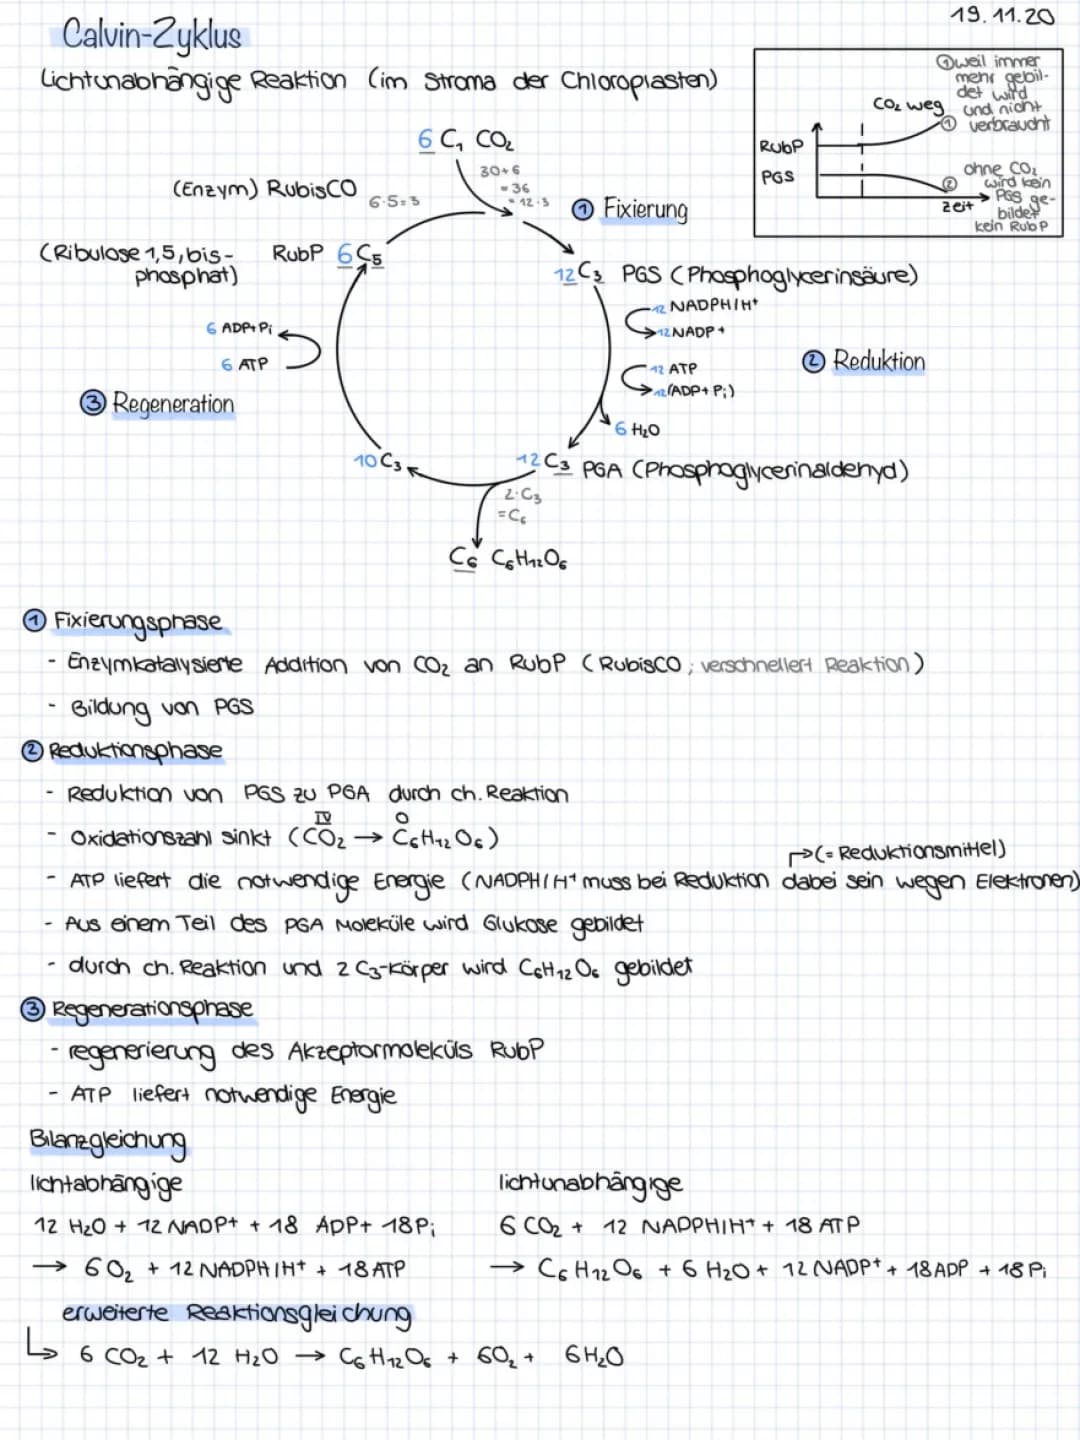 19.11.20
Calvin-Zyklus
Lichtunabhängige Reaktion (im Stroma der Chloroplasten)
① weil immer
mehr gebil-
det wird
und nicht
verbraucht
CO₂ weg
①
RubP
PGS
②
ohne CO₂
wird kein
PGS ge-
bildet
kein RubP
zeit
6 C₁ CO₂
30+6
= 36
= 12·3
(Enzym) RubisCO
6·5=3
① Fixierung
(Ribulose 1,5, bis-
phosphat)
RubP 6 C₅
12 C₃ PGS (Phosphoglycerinsäure)
12 NADPH/H⁺
12 NADP+
6 ADP+Pi
6 ATP
12 ATP
12(ADP+Pi)
② Reduktion
③ Regeneration
6 H₂O
10 C₃
12 C₃ PGA (Phosphoglycerinaldehyd)
2·C₃
= C₆
C₆ C₆H₁₂O₆
① Fixierungsphase
- Enzymkatalysierte Addition von CO₂ an RubP (RubisCO; verschnellert Reaktion)
- Bildung von PGS
② Reduktionsphase
- Reduktion von PGS zu PGA durch ch. Reaktion
IV O
- Oxidationszahl sinkt (CO₂ → C₆H₁₂O₆)
→(= Reduktionsmittel)
- ATP liefert die notwendige Energie (NADPH/H⁺ muss bei Reduktion dabei sein wegen Elektronen)
- Aus einem Teil des PGA Moleküle wird Glukose gebildet
- durch ch. Reaktion und 2 C₃-Körper wird C₆H₁₂O₆ gebildet
③ Regenerationsphase
- regenerierung des Akzeptormoleküls RubP
- ATP liefert notwendige Energie
Bilanzgleichung
lichtabhängige
12 H₂O + 12 NADP+ + 18 ADP+ 18Pi
→ 6O₂ + 12 NADPH/H⁺ + 18 ATP
lichtunabhängige
6 CO₂ + 12 NADPH/H⁺ + 18 ATP
→ C₆H₁₂O₆ + 6 H₂O + 12 NADP⁺ + 18 ADP + 18 Pi
erweiterte Reaktionsgleichung
↳ 6 CO₂ + 12 H₂O → C₆H₁₂O₆ + 6O₂ + 6H₂O